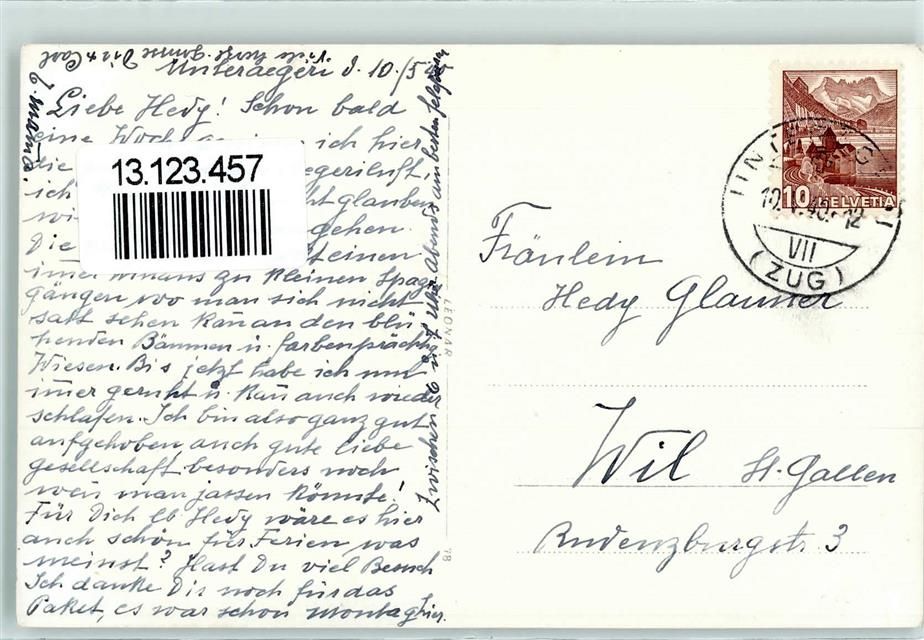 Viele herzl. Grüsse Dir u.
b. Mama.
Unteraegeri d. 10./5
Liebe Hedy! Schon bald
eine ich hier
die egeriluft,
ich ht glauben
wi gehen.
Die einen
imer hinaus zu kleinen Spazi
gängen wo man sich nicht
satt sehen kan an den blü-
henden Bäumen u. farbenprächtig
Wiesen. Bis jetzt habe ich nur
imer geruht u. kan auch wieder
schlafen. Ich bin also ganz gut
aufgehoben auch gute liebe
gesellschaft besonders noch
wen man jassen könnte!
Für Dich lb. Hedy wäre es hier
auch schön für Ferien was
meinst? Hast Du viel Besuch
Ich danke Dir noch für das
Paket, es war schon Montag hier.
Zwischen 6 u. 7 Uhr Abends am besten
13.123.457
LEONAR
78
10
HELVETIA
VII
(ZUG)
Fräulein
Hedy Glauser
Wil St. Gallen
Rudenzburgstr 3